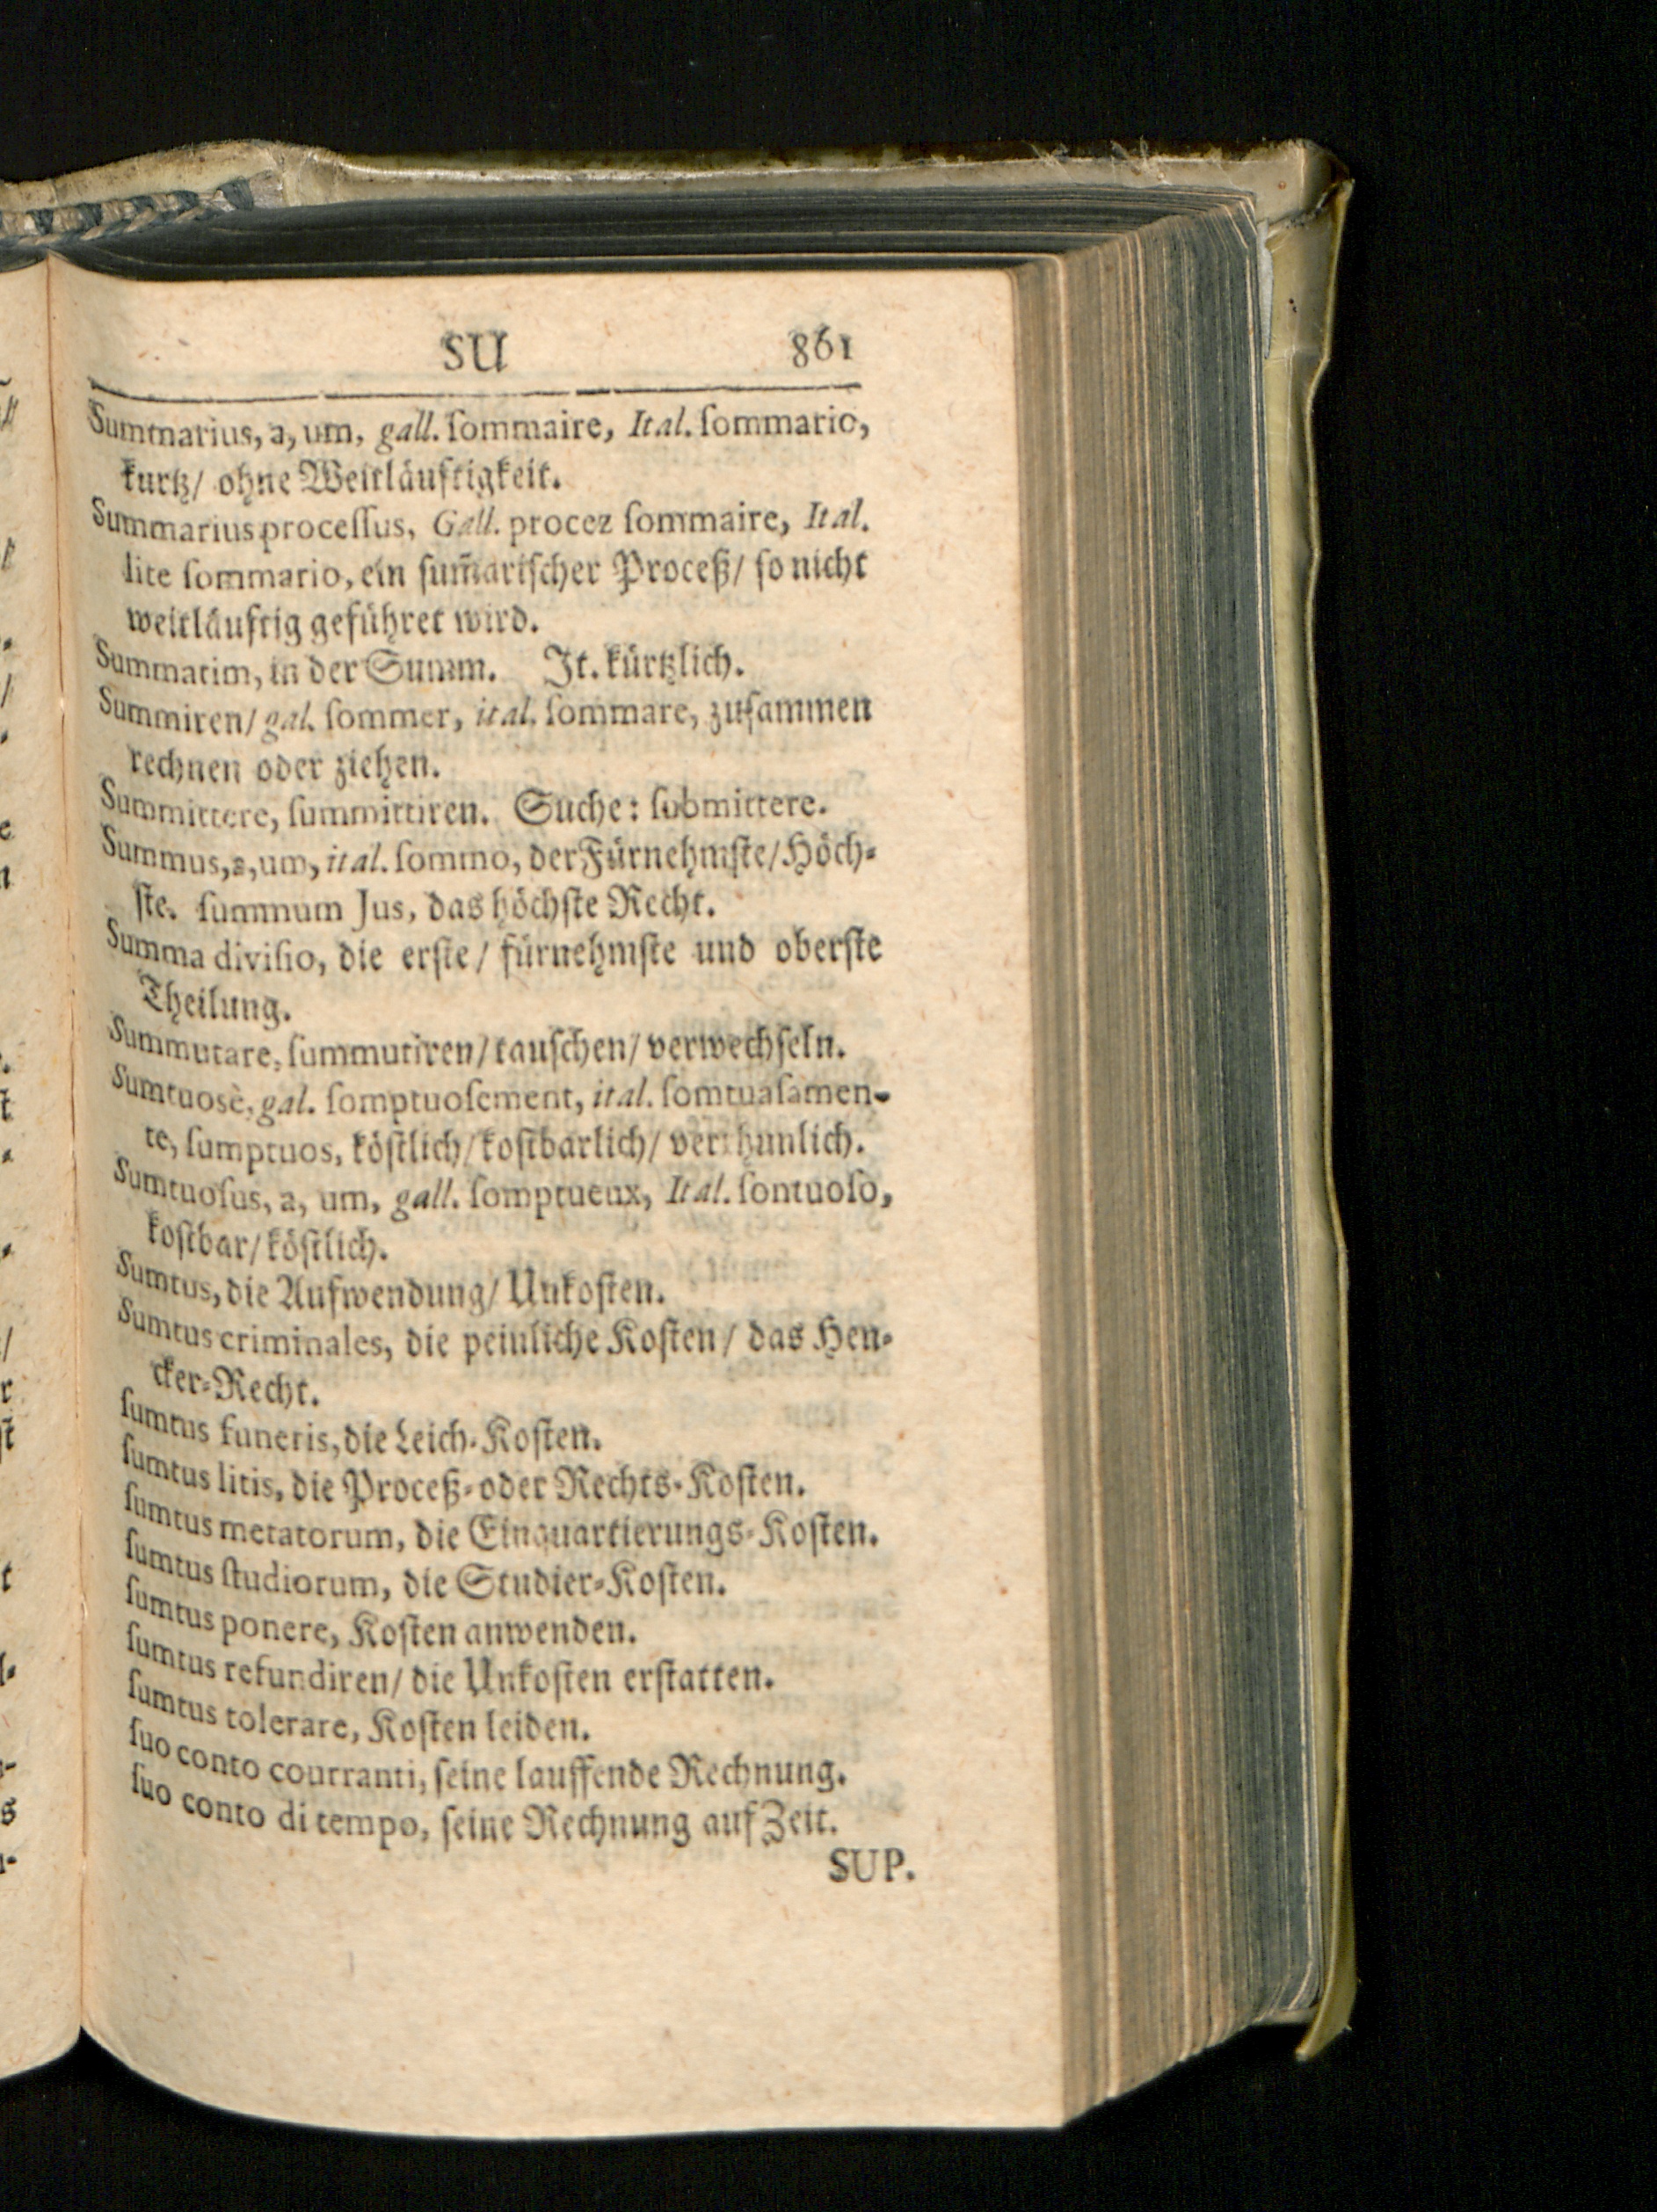 SU 861
Summarius, a, um, gall. ſommaire, Ital. ſommario,
kurtz/ ohne Weitläufftigkeit.
Summarius proceſſus, Gall. procez ſommaire, Ital.
lite ſommario, ein sum̃ariſcher Proceß/ ſo nicht
weitläuftig geführet wird.
Summatim, in der Summ. It. kürtzlich.
Summiren/ gal. ſommer, ital. ſommare, zuſammen
rechnen oder ziehen.
Summittere, ſummittiren. Suche: ſubmittere.
Summus, a, um, ital. ſommo, der Fürnehmſte/ Höch-
ſte. ſummum Jus, das höchſte Recht.
Summa diviſio, die erſte/ fürnehmſte und oberſte
Theilung.
Summutare, ſummutiren/ tauſchen/ verwechſeln.
Sumtuosè, gal. ſomptuoſement, ital. ſomtuaſamen-
te, ſumptuos, köſtlich/ koſtbarlich/ verthunlich.
Sumtuoſus, a, um, gall. ſomptueux, Ital. ſontuoſo,
koſtbar/ köſtlich.
Sumtus, die Aufwendung/ Unkoſten.
Sumtus criminales, die peinliche Koſten/ das Hen-
cker-Recht.
ſumtus funeris, die Leich-Koſten.
ſumtus litis, die Proceß- oder Rechts-Koſten.
ſumtus metatorum, die Einquartierungs-Koſten.
ſumtus ſtudiorum, die Studier-Koſten.
ſumtus ponere, Koſten anwenden.
ſumtus refundiren/ die Unkoſten erſtatten.
ſumtus tolerare, Koſten leiden.
ſuo conto courranti, ſeine lauffende Rechnung.
ſuo conto di tempo, ſeine Rechnung auf Zeit.
SUP.